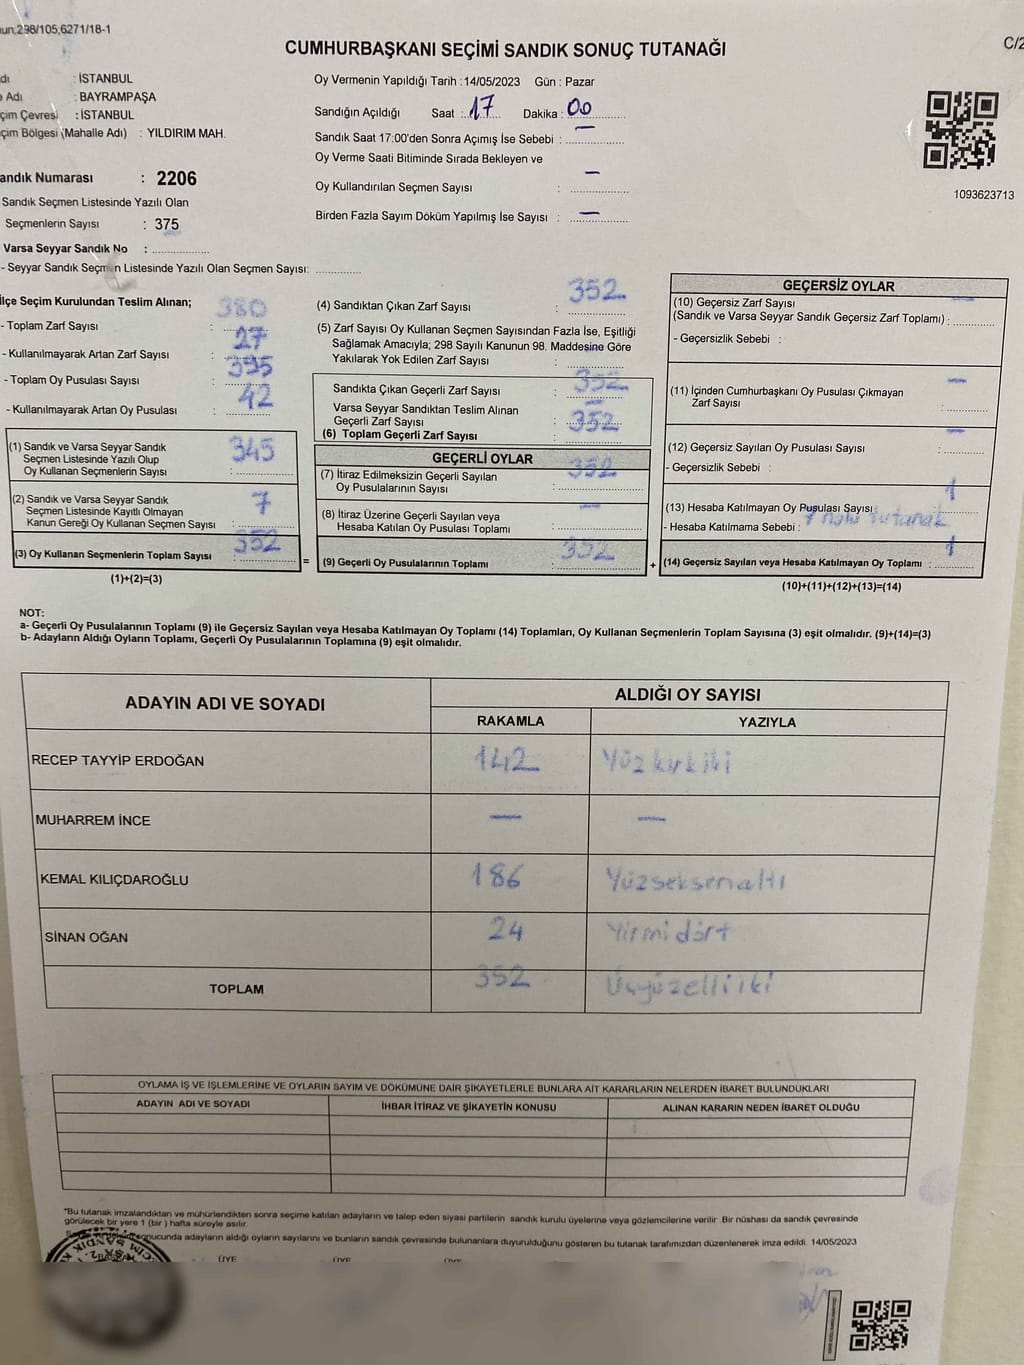 un,298/105,6271/18-1
CUMHURBAŞKANI SEÇİMİ SANDIK SONUÇ TUTANAĞI
C/2
dı : İSTANBUL
e Adı : BAYRAMPAŞA
çim Çevresi : İSTANBUL
çim Bölgesi (Mahalle Adı) : YILDIRIM MAH.
andık Numarası : 2206
Sandık Seçmen Listesinde Yazılı Olan
Seçmenlerin Sayısı : 375
Varsa Seyyar Sandık No :
- Seyyar Sandık Seçmen Listesinde Yazılı Olan Seçmen Sayısı:
Oy Vermenin Yapıldığı Tarih :14/05/2023 Gün : Pazar
Sandığın Açıldığı Saat : 17 Dakika : 00
Sandık Saat 17:00'den Sonra Açımış İse Sebebi : —
Oy Verme Saati Bitiminde Sırada Bekleyen ve
Oy Kullandırılan Seçmen Sayısı : —
Birden Fazla Sayım Döküm Yapılmış İse Sayısı : —
1093623713
lçe Seçim Kurulundan Teslim Alınan;
- Toplam Zarf Sayısı : 380
- Kullanılmayarak Artan Zarf Sayısı : 27
- Toplam Oy Pusulası Sayısı : 395
- Kullanılmayarak Artan Oy Pusulası : 42
(1) Sandık ve Varsa Seyyar Sandık
Seçmen Listesinde Yazılı Olup
Oy Kullanan Seçmenlerin Sayısı : 345
(2) Sandık ve Varsa Seyyar Sandık
Seçmen Listesinde Kayıtlı Olmayan
Kanun Gereği Oy Kullanan Seçmen Sayısı : 7
(3) Oy Kullanan Seçmenlerin Toplam Sayısı : 352
(1)+(2)=(3)
=
(4) Sandıktan Çıkan Zarf Sayısı : 352
(5) Zarf Sayısı Oy Kullanan Seçmen Sayısından Fazla İse, Eşitliği
Sağlamak Amacıyla; 298 Sayılı Kanunun 98. Maddesine Göre
Yakılarak Yok Edilen Zarf Sayısı : —
Sandıkta Çıkan Geçerli Zarf Sayısı : 352
Varsa Seyyar Sandıktan Teslim Alınan
Geçerli Zarf Sayısı : —
(6) Toplam Geçerli Zarf Sayısı : 352
GEÇERLİ OYLAR
(7) İtiraz Edilmeksizin Geçerli Sayılan
Oy Pusulalarının Sayısı : 352
(8) İtiraz Üzerine Geçerli Sayılan veya
Hesaba Katılan Oy Pusulası Toplamı : —
(9) Geçerli Oy Pusulalarının Toplamı : 352
+
GEÇERSİZ OYLAR
(10) Geçersiz Zarf Sayısı
(Sandık ve Varsa Seyyar Sandık Geçersiz Zarf Toplamı) : —
- Geçersizlik Sebebi :
(11) İçinden Cumhurbaşkanı Oy Pusulası Çıkmayan
Zarf Sayısı : —
(12) Geçersiz Sayılan Oy Pusulası Sayısı : —
- Geçersizlik Sebebi :
(13) Hesaba Katılmayan Oy Pusulası Sayısı : 1
- Hesaba Katılmama Sebebi : tutanak
(14) Geçersiz Sayılan veya Hesaba Katılmayan Oy Toplamı : 1
(10)+(11)+(12)+(13)=(14)
NOT:
a- Geçerli Oy Pusulalarının Toplamı (9) ile Geçersiz Sayılan veya Hesaba Katılmayan Oy Toplamı (14) Toplamları, Oy Kullanan Seçmenlerin Toplam Sayısına (3) eşit olmalıdır. (9)+(14)=(3)
b- Adayların Aldığı Oyların Toplamı, Geçerli Oy Pusulalarının Toplamına (9) eşit olmalıdır.
ADAYIN ADI VE SOYADI ALDIĞI OY SAYISI
RAKAMLA YAZIYLA
RECEP TAYYİP ERDOĞAN 142 Yüz kırk iki
MUHARREM İNCE — —
KEMAL KILIÇDAROĞLU 186 Yüzseksenaltı
SİNAN OĞAN 24 Yirmi dört
TOPLAM 352 Üçyüzelliiki
OYLAMA İŞ VE İŞLEMLERİNE VE OYLARIN SAYIM VE DÖKÜMÜNE DAİR ŞİKAYETLERLE BUNLARA AİT KARARLARIN NELERDEN İBARET BULUNDUKLARI
ADAYIN ADI VE SOYADI İHBAR İTİRAZ VE ŞİKAYETİN KONUSU ALINAN KARARIN NEDEN İBARET OLDUĞU
*Bu tutanak imzalandıktan ve mühürlendikten sonra seçime katılan adayların ve talep eden siyasi partilerin sandık kurulu üyelerine veya gözlemcilerine verilir .Bir nüshası da sandık çevresinde
görülecek bir yere 1 (bir ) hafta süreyle asılır.
sonucunda adayların aldığı oyların sayılarını ve bunların sandık çevresinde bulunanlara duyurulduğunu gösteren bu tutanak tarafımızdan düzenlenerek imza edildi. 14/05/2023
ÜYE ÜYE